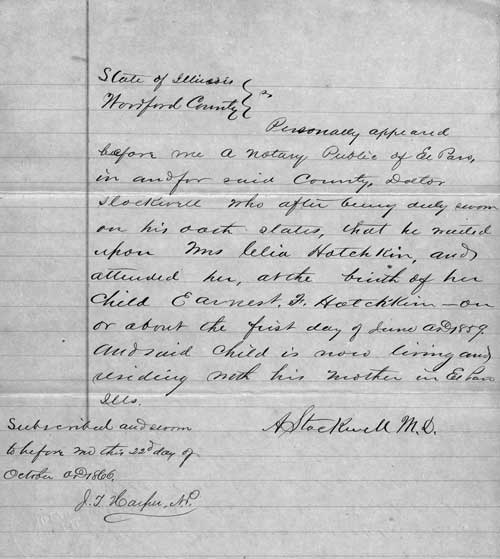 State of Illinois } ss
Wordford County }
Personally appeared
before me a notary Public of El Paso,
in and for said County, Doctor
Stockwell who after being duly sworn
on his oath states, that he waited
upon Mrs Celia Hotchkin, and
attended her, at the birth of her
Child Earnest. F. Hotchkin - on
or about the first day of June AD 1859
And said Child is now living and
residing with his mother in El Paso
Ills.
A Stockwell M.D.
Subscribed and sworn
to before me this 22d day of
October AD 1866.
J. T. Harper, N.P.